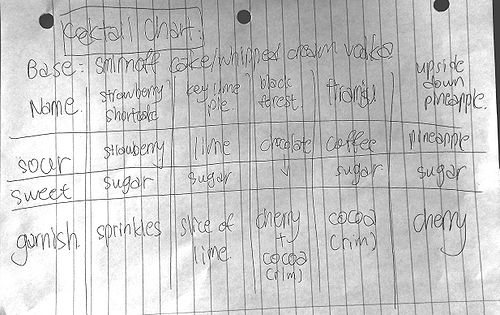 Cocktail Chart:
Base: smirnoff cake/whipped cream vodka
Name strawberry shortcake key lime pie black forest upside down pineapple
sour strawberry lime chocolate coffee pineapple
sweet sugar sugar ↓ sugar sugar
garnish sprinkles slice of lime cherry + cocoa (rim) cocoa (rim) cherry